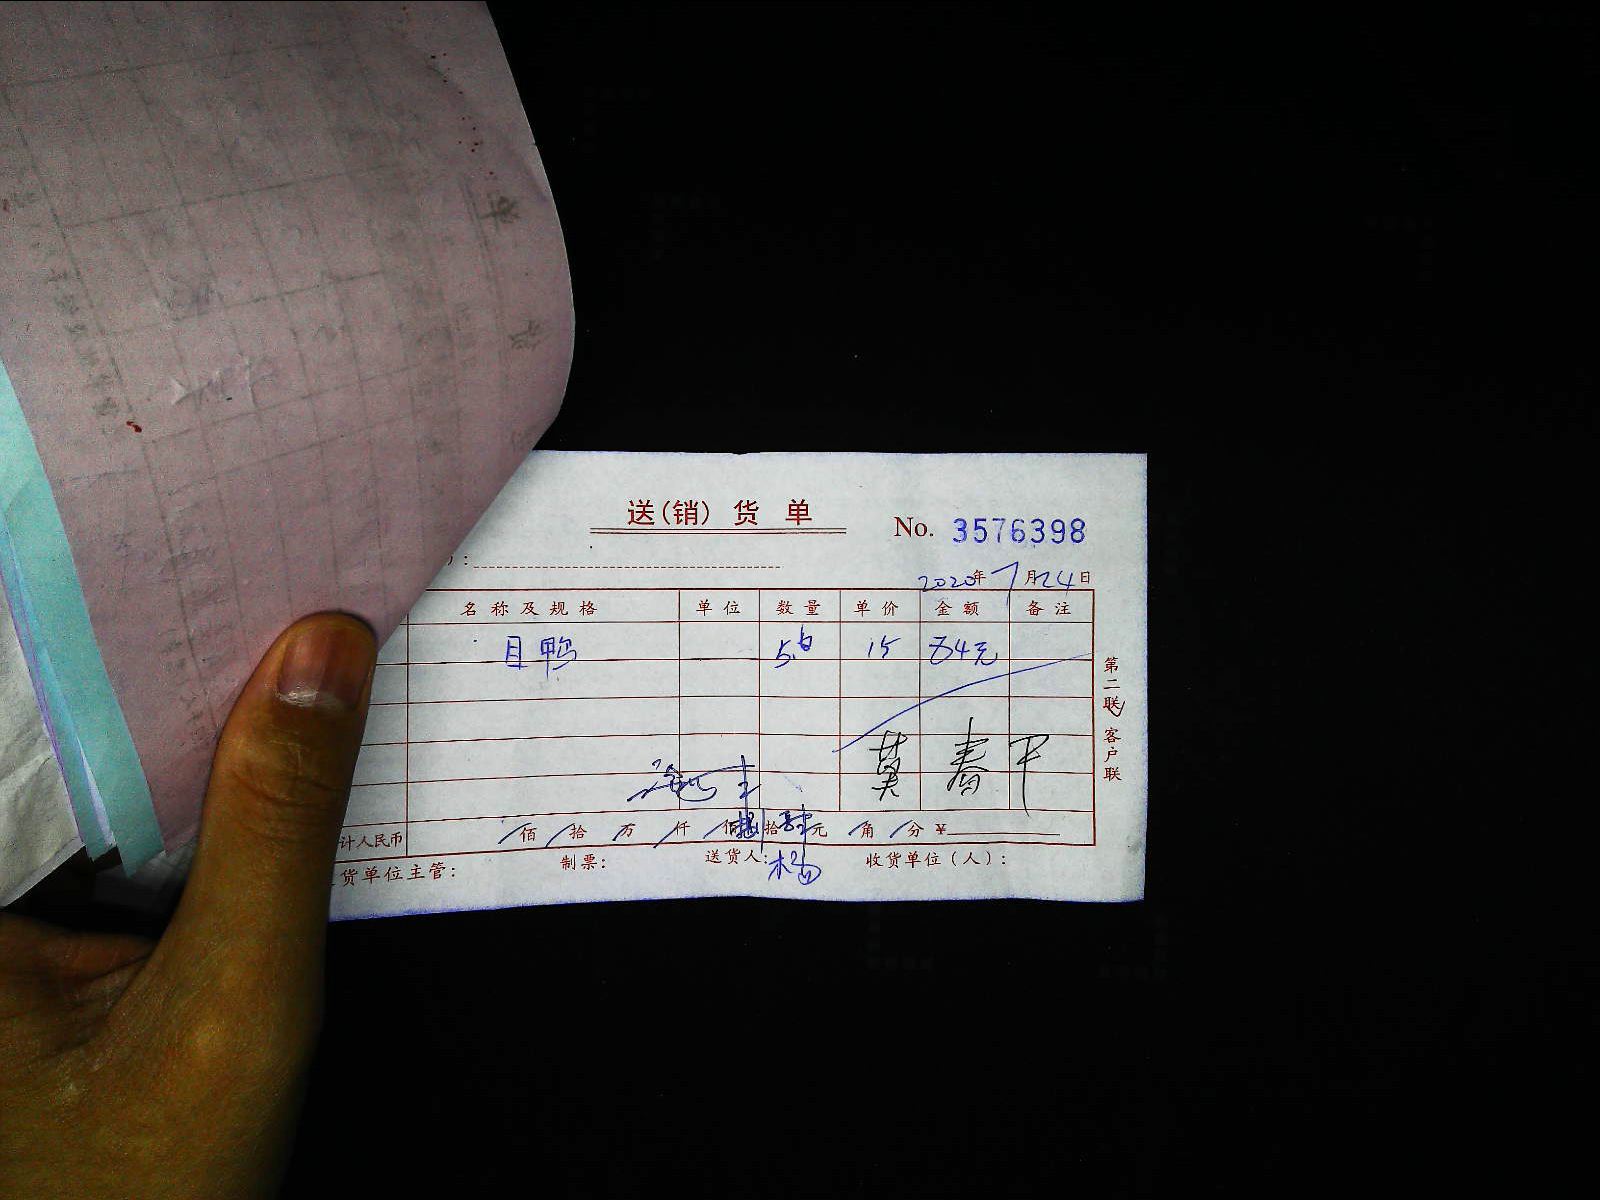 送(销) 货 单
No. 3576398
2020年7月24日
名称及规格 单位 数量 单价 金额 备注
目鸭 5.6 15 84元
第二联 客户联
莫春平
计人民币 佰 拾 万 仟 佰 捌拾肆元 角 分 ¥
货单位主管: 制票: 送货人: 杨 收货单位(人):